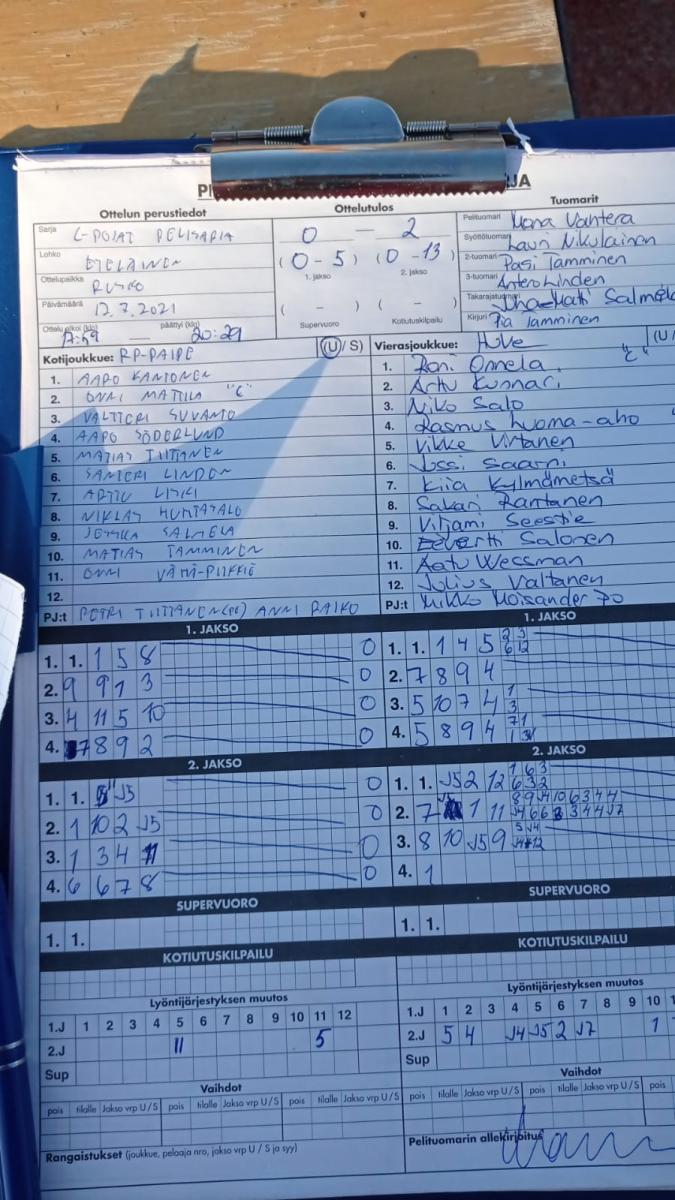 Ottelun perustiedot
Ottelutulos
Tuomarit
Sarja C-POJAT PELISARJA
Lohko ETELÄINEN
Ottelupaikka RUSKO
Päivämäärä 12.7.2021
Ottelu alkoi (klo) 17:59 — päättyi (klo) 20:29
0 — 2
(0-5) (0-13)
1. jakso 2. jakso
( - ) ( - )
Supervuoro Kotiutuskilpailu
Pelituomari
Syöttötuomari Lauri Nikulainen
2-tuomari Pasi Tamminen
3-tuomari Antero Linden
Takarajatuomari
Kirjuri Pia Tamminen
Kotijoukkue: RP-PAIPE (U/S)
1. AAPO KANTONEN
2. ONNI MATTILA "C"
3. VALTTERI SUVANTO
4. AAPO SÖDERLUND
5. MATIAS TIITTANEN
6. SANTERI LINDEN
7. ARTTU
8. NIKLAS HUHTASALO
9. SALMELA
10. MATIAS TAMMINEN
11. ONNI
12.
PJ:t PETRI TIITTANEN (PE) ANNI RAIKO
Vierasjoukkue: HuVe (U/
1. Roni Onnela "C"
2. Arttu Kunnari
3. Niko Salo
4. Rasmus Luoma-aho
5. Vikke Virtanen
6. Jussi Saarni
7. Kiia Kylmämetsä
8. Sakari Rantanen
9. Viljami Seestie
10. Eevertti Salonen
11. Aatu Wessman
12. Julius Valtanen
PJ:t Mikko Moisander
1. JAKSO
1. 1. 1 5 8 0
2. 9 9 1 3 0
3. 4 11 5 10 0
4. 7 8 9 2 0
2. JAKSO
1. 1. J5 0
2. 1 10 2 J5 0
3. 1 3 4 11 0
4. 6 6 7 8 0
SUPERVUORO
1. 1.
KOTIUTUSKILPAILU
Lyöntijärjestyksen muutos
1.J 1 2 3 4 5 6 7 8 9 10 11 12
2.J 11 5
Sup
Vaihdot
pois tilalle Jakso vrp U/S pois tilalle Jakso vrp U/S pois tilalle Jakso vrp U/S
Rangaistukset (joukkue, pelaaja nro, jakso vrp U / S ja syy)
1. JAKSO
1. 1. 1 4 5
2. 7 8 9 4
3. 5 10 7 4
4. 5 8 9 4
2. JAKSO
1. 1. J5 2 12
2. 7 1 11
3. 8 10 J5 9
4. 1
SUPERVUORO
1. 1.
KOTIUTUSKILPAILU
Lyöntijärjestyksen muutos
1.J 1 2 3 4 5 6 7 8 9 10
2.J 5 4 J4 J5 2 J7 1
Sup
Vaihdot
pois tilalle Jakso vrp U/S pois tilalle Jakso vrp U/S
Pelituomarin allekirjoitus